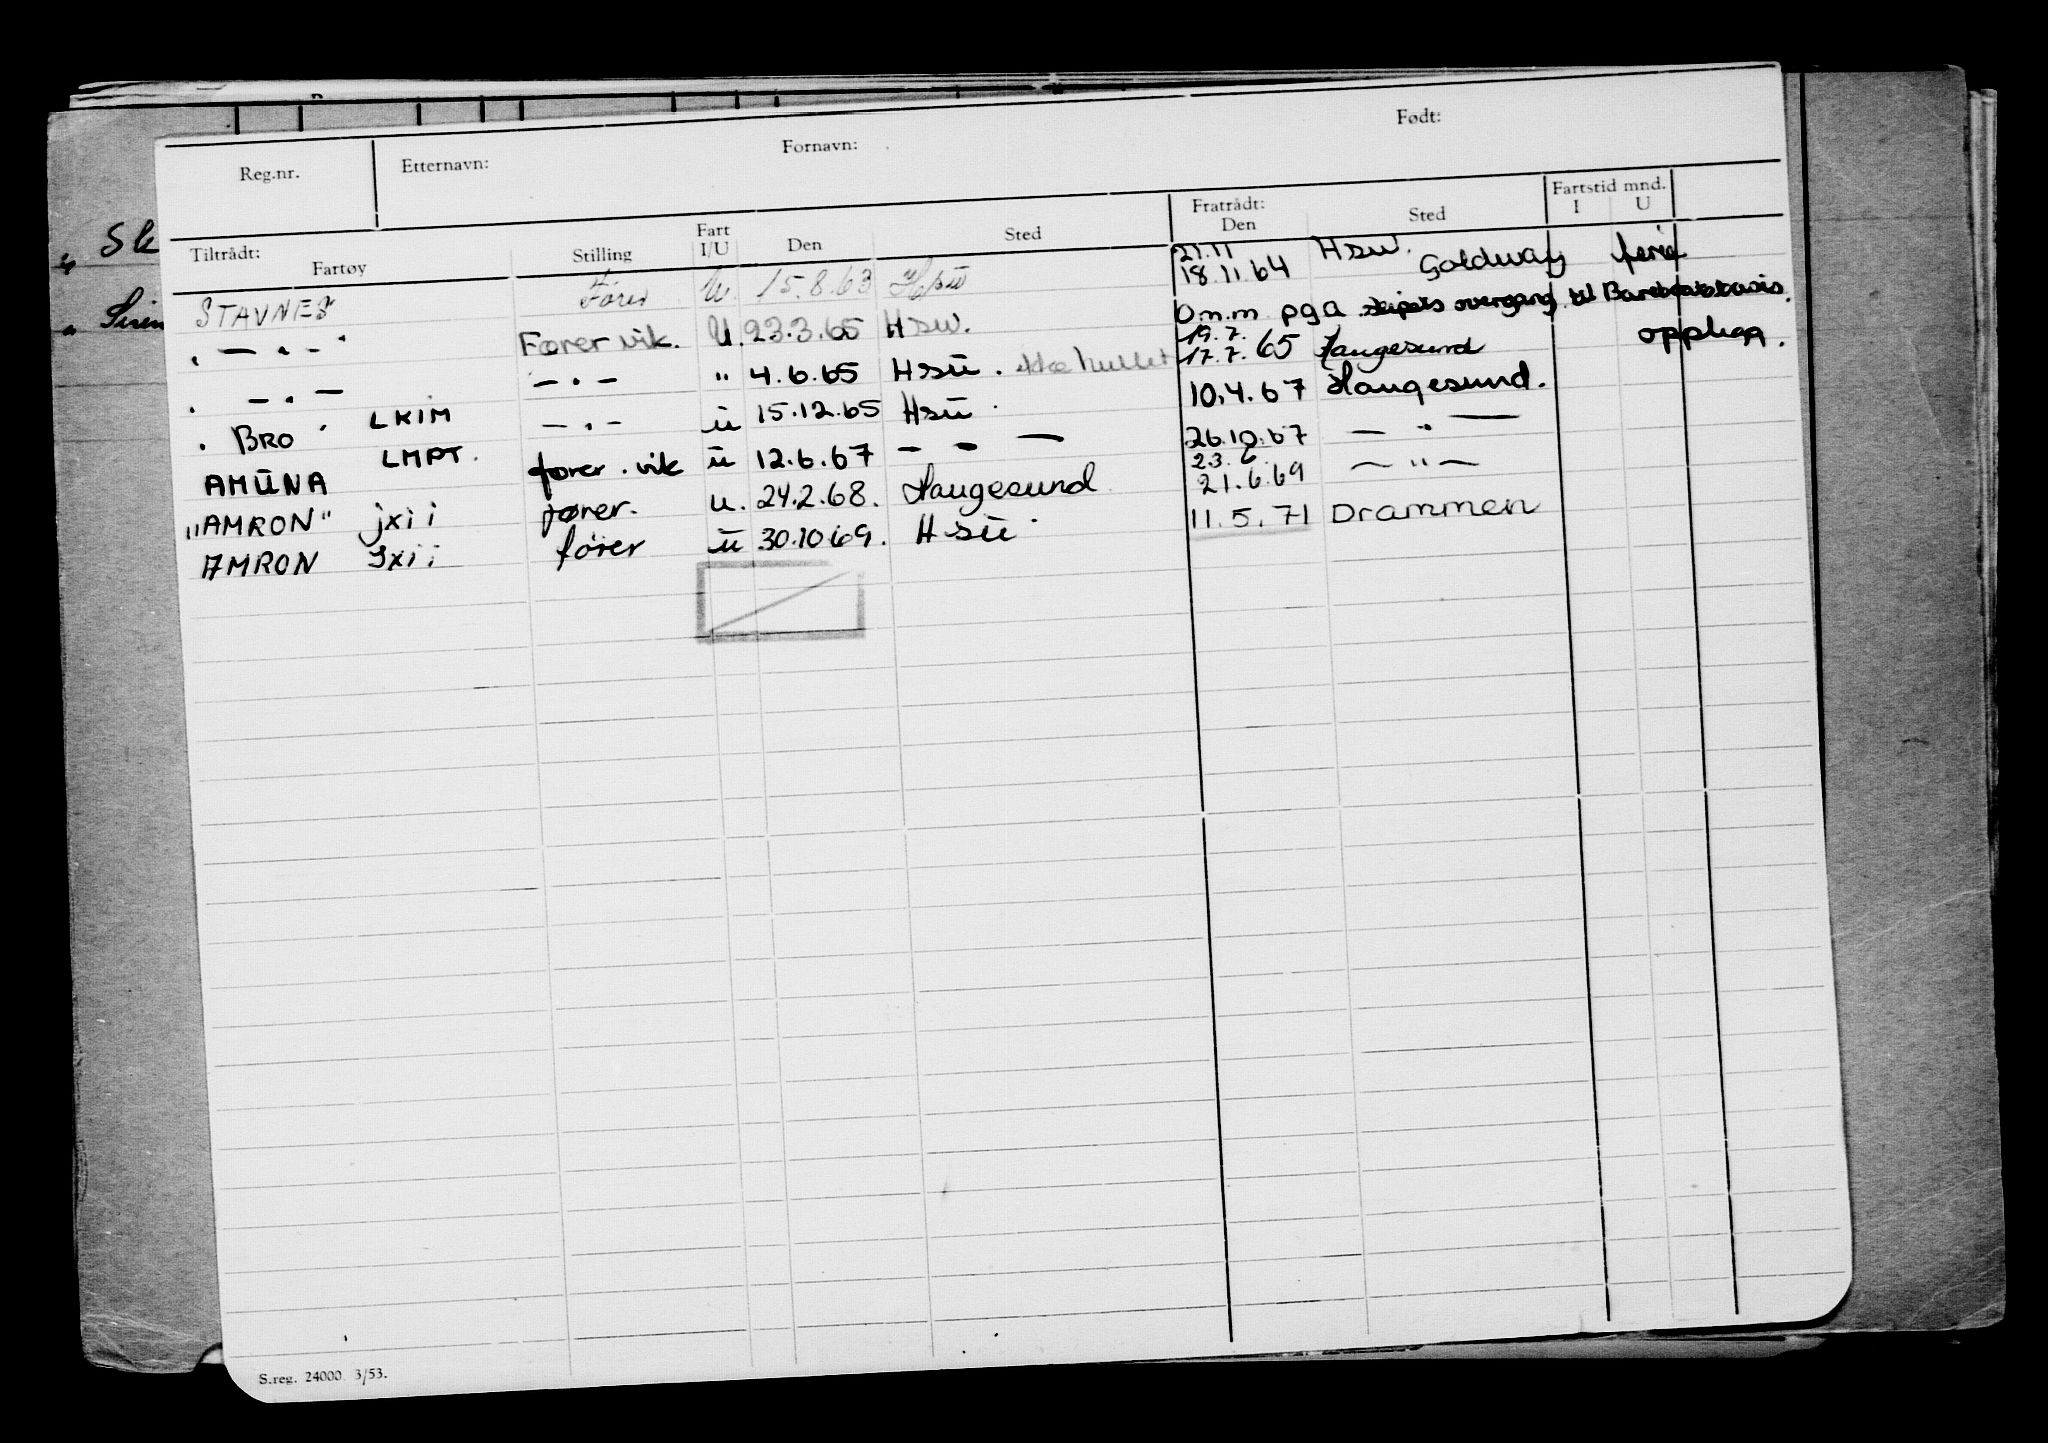 Reg.nr. Etternavn: Fornavn: Født:
Tiltrådt: Fartøy Stilling Fart I/U Den Sted Fratrådt: Den Sted Fartstid mnd. I U
STAVNES Fører U. 15.8.63 Hsu 21.11 18.11.64 Hsu. Goldway ferie
" — " — " Fører vik. U. 23.3.65 Hsu. D.m.m pga skipets overgang til Bareboatbasis.
" — " — — " — " 4.6.65 Hsu. ikke hullet 19.7. 17.7.65 Haugesund opplag.
" BRO " LKIM — " — u 15.12.65 Hsu. 10.4.67 Haugesund.
AMUNA LMPT. fører. vik u 12.6.67 — " — 26.10.67 — " —
"AMRON" jxii fører. u. 24.2.68. Haugesund 23.6. 21.6.69 — " —
AMRON Jxii fører u 30.10 69. Hsu. 11.5.71 Drammen
Sk
Siren
S.reg. 24000. 3/53.